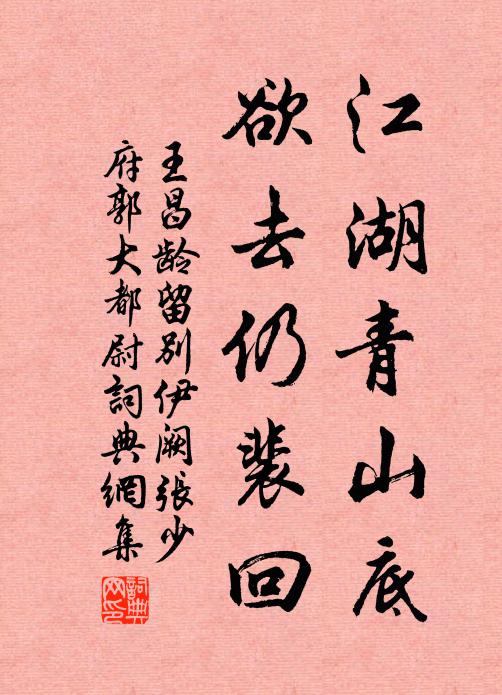 江湖青山底
欲去仍裴回
王昌龄留别伊阙張少
府郭大都尉詞典網集